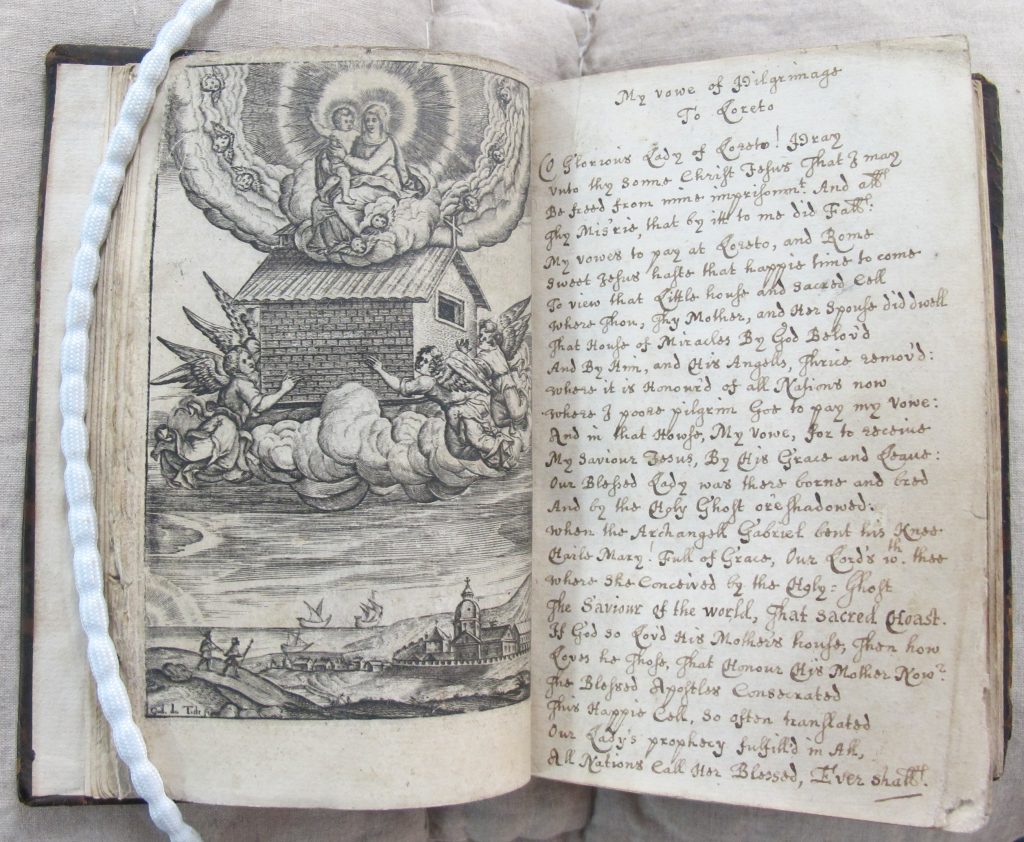 My vowe of Pilgrimage
To Loreto
O Glorious Lady of Loreto! Pray
Vnto thy Sonne Christ Jesus That I may
Be freed from mine imprisonmt. And all
Thy Misrie, that by itt to me did Fall:
My vowes to pay at Loreto, and Rome
Sweet Jesus haste that happie time to come
To view that Little house and Sacred Cell
Where Thou, Thy Mother, and Her Spouse did dwell
That House of Miracles By God Belov'd
And By Him, and His Angells, Thrice remov'd:
Where it is Honour'd of all Nations now
Where I poore pilgrim Goe to pay my Vowe:
And in that Howse, My Vowe, for to receive
My Saviour Jesus, By His Grace and Leaue:
Our Blessed Lady was there borne and bred
And by the Holy Ghost o'reshadowed:
When the Archangell Gabriel bent his Knee
Haile Mary! Full of Grace, Our Lord's wth. thee
Where She Conceived by the Holy-Ghost
The Saviour of the world, That Sacred Hoast.
If God so Lov'd His Mothers house, Then how
Loves he Those, That Honour His Mother Now?
The Blessed Apostles Consecrated
This Happie Cell, So often translated
Our Lady's prophecy fulfill'd in All,
All Nations Call Her Blessed, Ever shall.